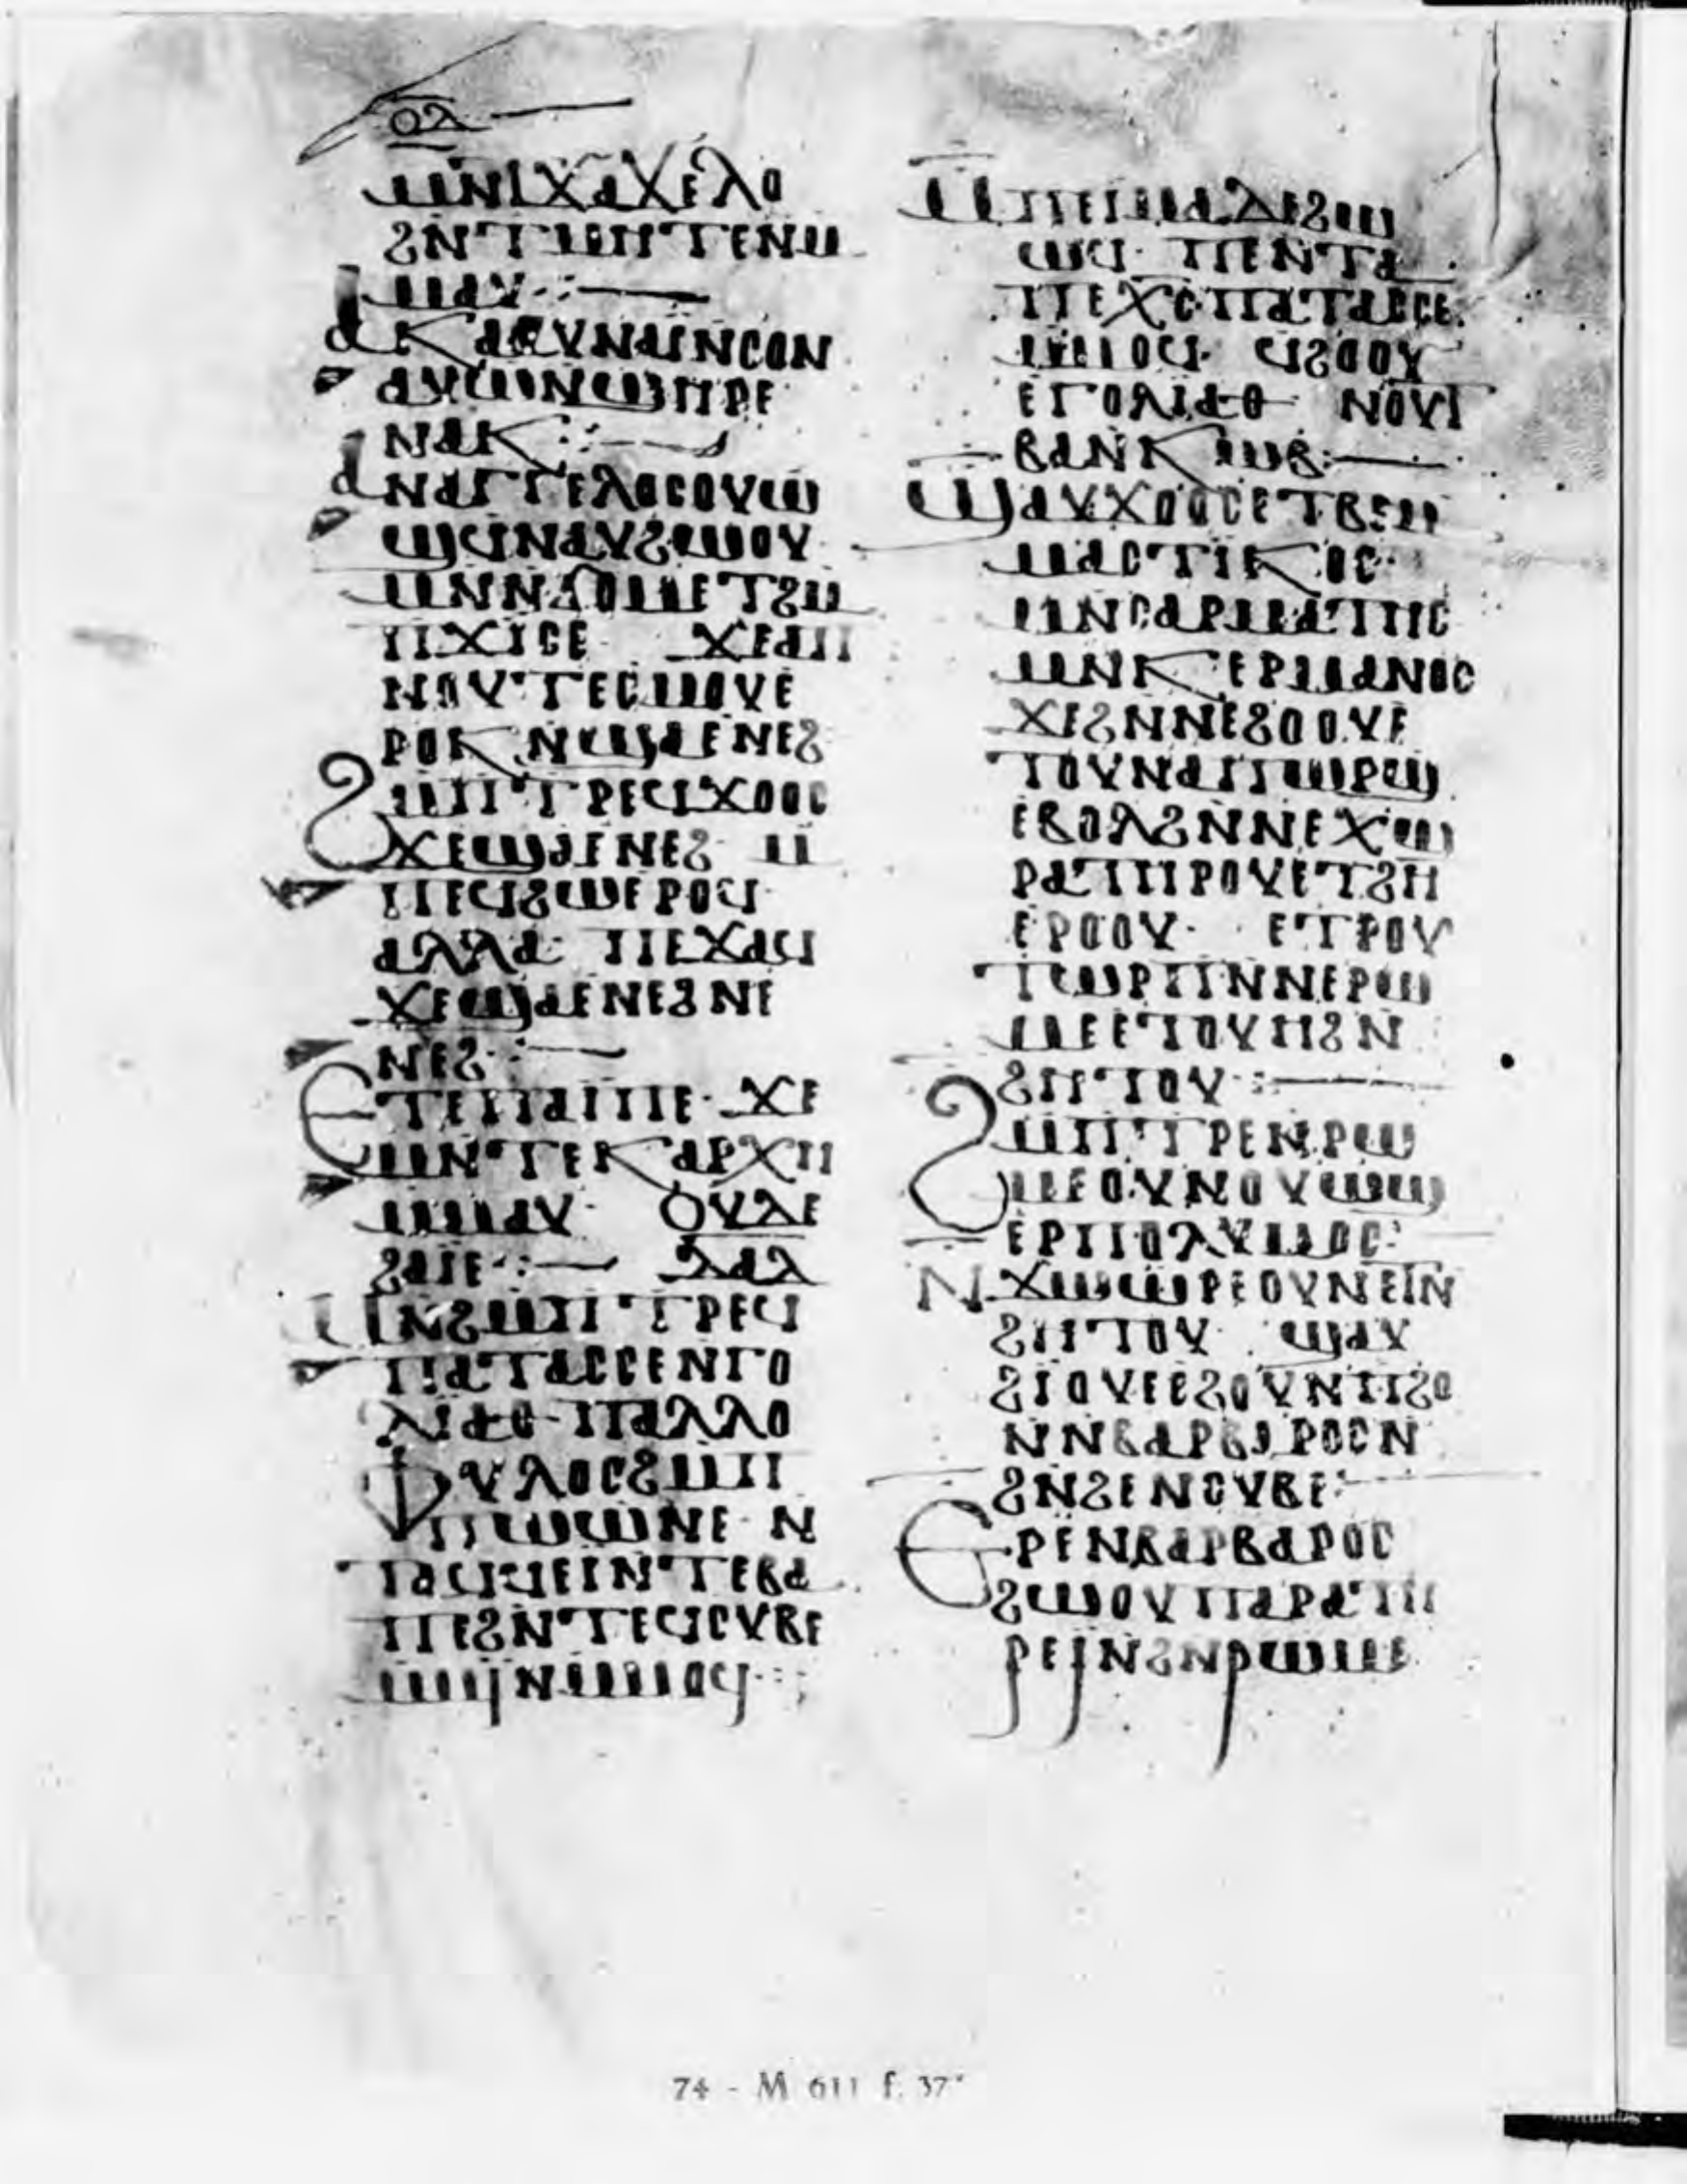 ⲟⲇ
ⲙⲛⲓϫⲁϫⲉⲗⲟ
ϩⲛⲧⲙⲏⲧⲉⲛⲙ
ⲙⲁⲩ
ⲁⲕⲁⲥⲩⲛⲁⲓⲛⲥⲟⲛ
ⲁⲩⲱⲛϣⲏⲣⲉ
ⲛⲁⲕ
ⲁⲛⲁⲅⲅⲉⲗⲟⲥⲟⲩⲱ
ϣϥⲛⲁⲩϩⲱⲟⲩ
ⲙⲛⲛϭⲟⲙⲉⲧϩⲙ
ⲡϫⲓⲥⲉ ϫⲉⲁⲡ
ⲛⲟⲩⲧⲉⲥⲙⲟⲩⲉ
ⲣⲟⲕⲛϣⲁⲉⲛⲉϩ
ϩⲙⲡⲧⲣⲉϥϫⲟⲟⲥ
ϫⲉϣⲁⲉⲛⲉϩ ⲙ
ⲡⲉϥϩⲱⲉⲣⲟϥ
ⲁⲗⲗⲁ ⲡⲉϫⲁϥ
ϫⲉϣⲁⲉⲛⲉϩⲛⲉ
ⲛⲉϩ
ⲉⲧⲉⲡⲁⲓⲡⲉ ϫⲉ
ⲙⲛⲧⲉⲕⲁⲣⲭⲏ
ⲙⲙⲁⲩ ⲟⲩⲇⲉ
ϩⲁⲉ ⲇⲁⲇ
ⲙⲛϩⲙⲡⲧⲣⲉϥ
ⲡⲁⲧⲁⲥⲥⲉⲛⲅⲟ
ⲗⲓⲁⲑ ⲡⲁⲗⲗⲟ
ⲫⲩⲗⲟⲥϩⲙⲡ
ⲡⲱⲱⲛⲉ ⲛ
ⲧⲟϥϥⲉⲓⲛⲧⲉϥⲁ
ⲡⲉϩⲛⲧⲉϥⲥⲩⲃⲉ
ⲙⲙⲓⲛⲙⲙⲟϥ
ⲙⲡⲉⲓⲙⲁⲇⲉϩⲱ
ⲱϥ ⲡⲉⲛⲧⲁ
ⲡⲉⲭⲥⲡⲁⲧⲁⲥⲥⲉ
ⲙⲙⲟϥ ϥϩⲟⲟⲩ
ⲉⲅⲟⲗⲓⲁⲑ ⲛⲟⲩⲧ
ⲃⲁⲛⲕⲱⲃ
ϣⲁⲩϫⲟⲟⲥⲉⲧⲃⲉⲙ
ⲙⲁⲥⲧⲓⲕⲟⲥ
ⲙⲛⲥⲁⲣⲙⲁⲧⲏⲥ
ⲙⲛⲕⲉⲣⲙⲁⲛⲟⲥ
ϫⲉϩⲛⲛⲉϩⲟⲟⲩⲉ
ⲧⲟⲩⲛⲁⲡⲱⲣϣ
ⲉⲃⲟⲗϩⲛⲛⲉⲭⲱ
ⲣⲁⲧⲏⲣⲟⲩⲉⲧϩⲏ
ⲉⲣⲟⲟⲩ ⲉⲧⲣⲟⲩ
ⲧⲱⲣⲡⲛⲛⲉⲣⲱ
ⲙⲉⲉⲧⲟⲩⲏϩⲛ
ϩⲏⲧⲟⲩ
ϩⲙⲡⲧⲣⲉⲛⲣⲱ
ⲙⲉⲟⲩⲛⲟⲩⲱϣ
ⲉⲣⲡⲟⲗⲩⲙⲟⲥ
ⲛϫⲱⲱⲣⲉⲟⲩⲛⲉⲧⲛ
ϩⲏⲧⲟⲩ ϣⲁⲩ
ϩⲓⲟⲩⲉⲉϩⲟⲩⲛⲡϩⲟ
ⲛⲛⲃⲁⲣⲃⲁⲣⲟⲥⲛ
ϩⲛϩⲉⲛⲥⲩⲃⲉ
ⲉⲣⲉⲛⲃⲁⲣⲃⲁⲣⲟⲥ
ϩⲱⲟⲩⲡⲁⲣⲁⲧⲏ
ⲣⲉⲓⲛϩⲛⲣⲱⲙⲉ
74 - M 611 f. 37ᵛ